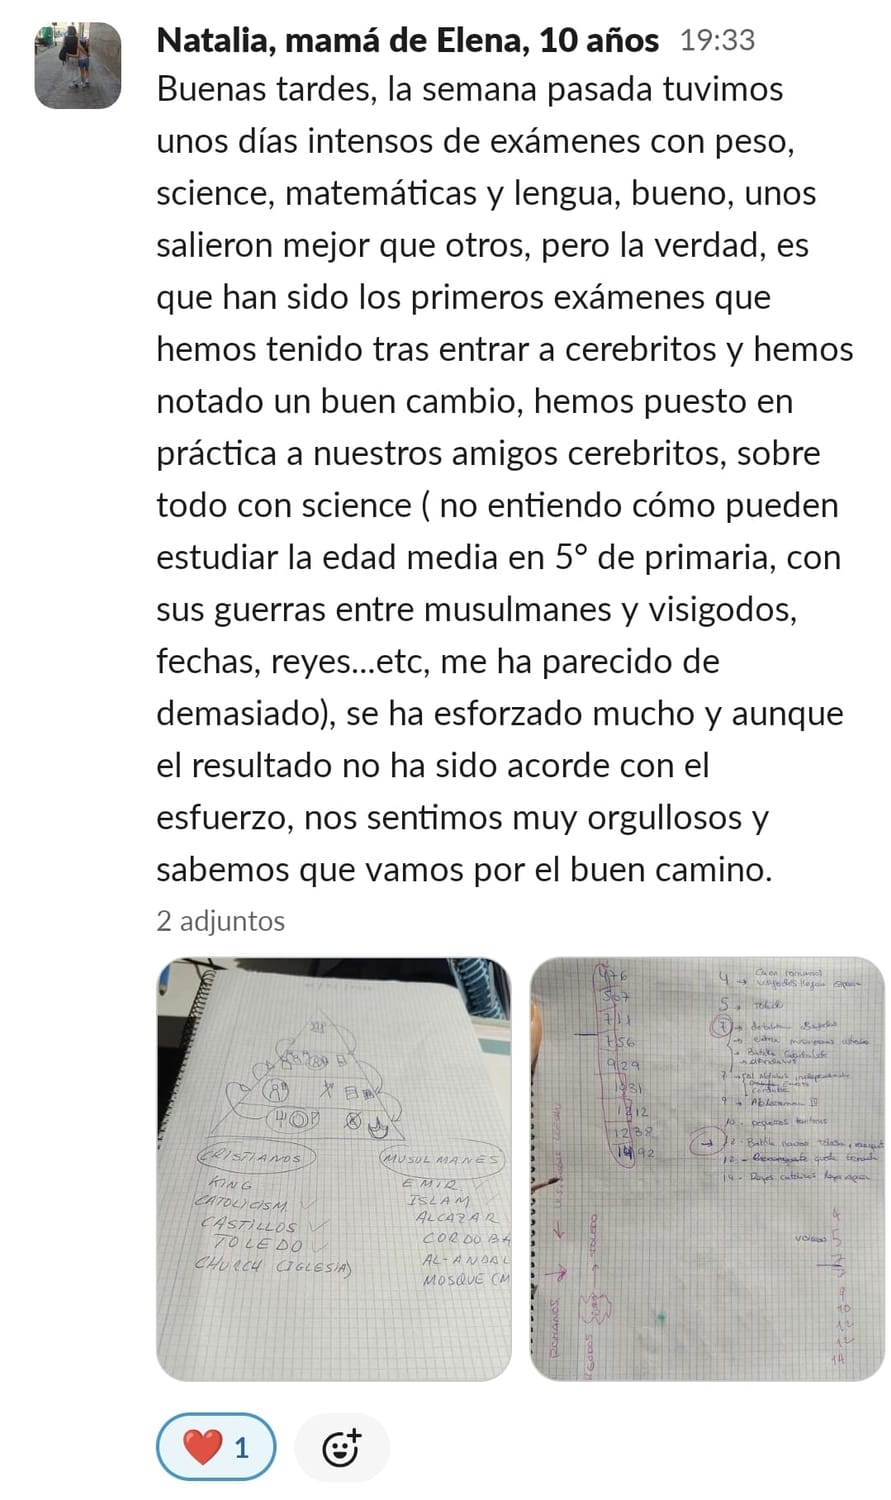 Natalia, mamá de Elena, 10 años 19:33
Buenas tardes, la semana pasada tuvimos
unos días intensos de exámenes con peso,
science, matemáticas y lengua, bueno, unos
salieron mejor que otros, pero la verdad, es
que han sido los primeros exámenes que
hemos tenido tras entrar a cerebritos y hemos
notado un buen cambio, hemos puesto en
práctica a nuestros amigos cerebritos, sobre
todo con science ( no entiendo cómo pueden
estudiar la edad media en 5° de primaria, con
sus guerras entre musulmanes y visigodos,
fechas, reyes...etc, me ha parecido de
demasiado), se ha esforzado mucho y aunque
el resultado no ha sido acorde con el
esfuerzo, nos sentimos muy orgullosos y
sabemos que vamos por el buen camino.
2 adjuntos
CRISTIANOS
KING
CATOLICISM
CASTILLOS
TOLEDO
CHURCH (IGLESIA)
MUSULMANES
EMIR
ISLAM
ALCAZAR
CORDOBA
AL-ANDAL
MOSQUE (M
476
507
711
756
929
1031
1212
1238
1492
4 →
5 → Toledo
7
9 → Abderraman III
10 - pequeños
12 - Batalla navas Tolosa
14 - Reyes católicos
ROMANOS
TOLEDO
4
5
7
7
9
10
12
12
14
1